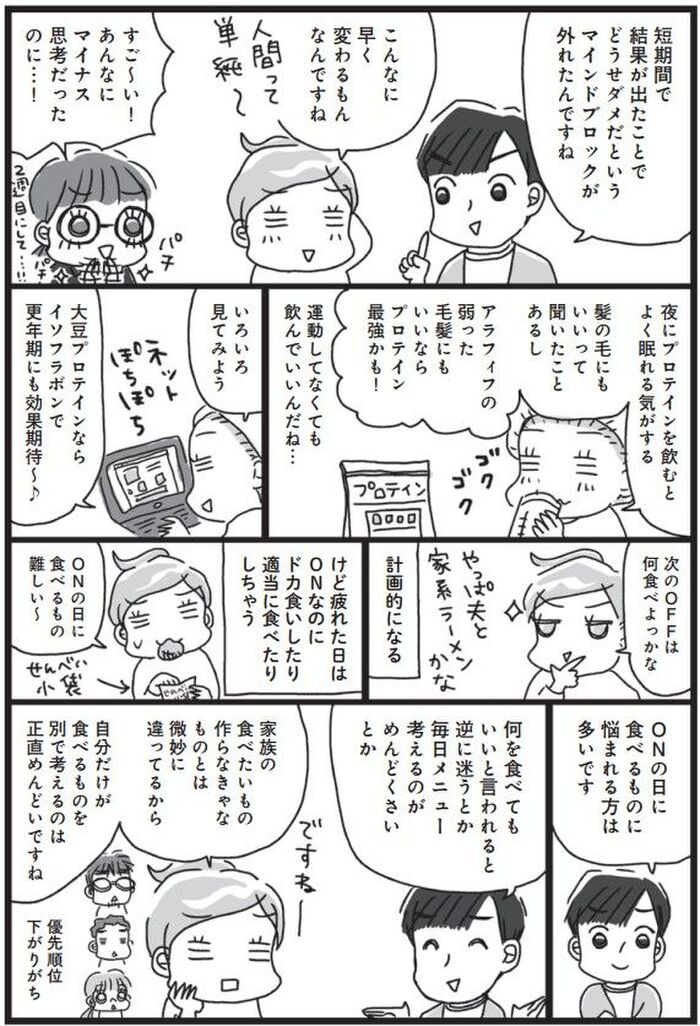 短期間で
結果が出たことで
どうせダメだという
マインドブロックが
外れたんですね
こんなに
早く
変わるもん
なんですね
人間って
単純〜
すご〜い！
あんなに
マイナス
思考だった
のに…！
2週目にして…!!
パチ
パチ
夜にプロテインを飲むと
よく眠れる気がする
髪の毛にも
いいって
聞いたこと
あるし
アラフィフの
弱った
毛髪にも
いいなら
プロテイン
最強かも！
運動してなくても
飲んでいいんだね…
プロテイン
ゴク
ゴク
いろいろ
見てみよう
ネット
ぽちぽち
大豆プロテインなら
イソフラボンで
更年期にも効果期待〜♪
次のOFFは
何食べよっかな
やっぱ夫と
家系ラーメン
かな
計画的になる
けど疲れた日は
ONなのに
ドカ食いしたり
適当に食べたり
しちゃう
ONの日に
食べるもの
難しい〜
せんべい
小袋
せんべい
ONの日に
食べるものに
悩まれる方は
多いです
何を食べても
いいと言われると
逆に迷うとか
毎日メニュー
考えるのが
めんどくさい
とか
ですねー
家族の
食べたいもの
作らなきゃな
ものとは
微妙に
違ってるから
自分だけが
食べるものを
別で考えるのは
正直めんどいですね
優先順位
下がりがち